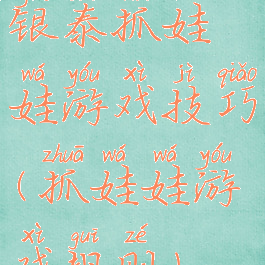 银泰抓娃
wá yóu xì jì qiǎo
娃游戏技巧
zhuā wá wá yóu
(抓娃娃游
xì guī zé
戏规则)